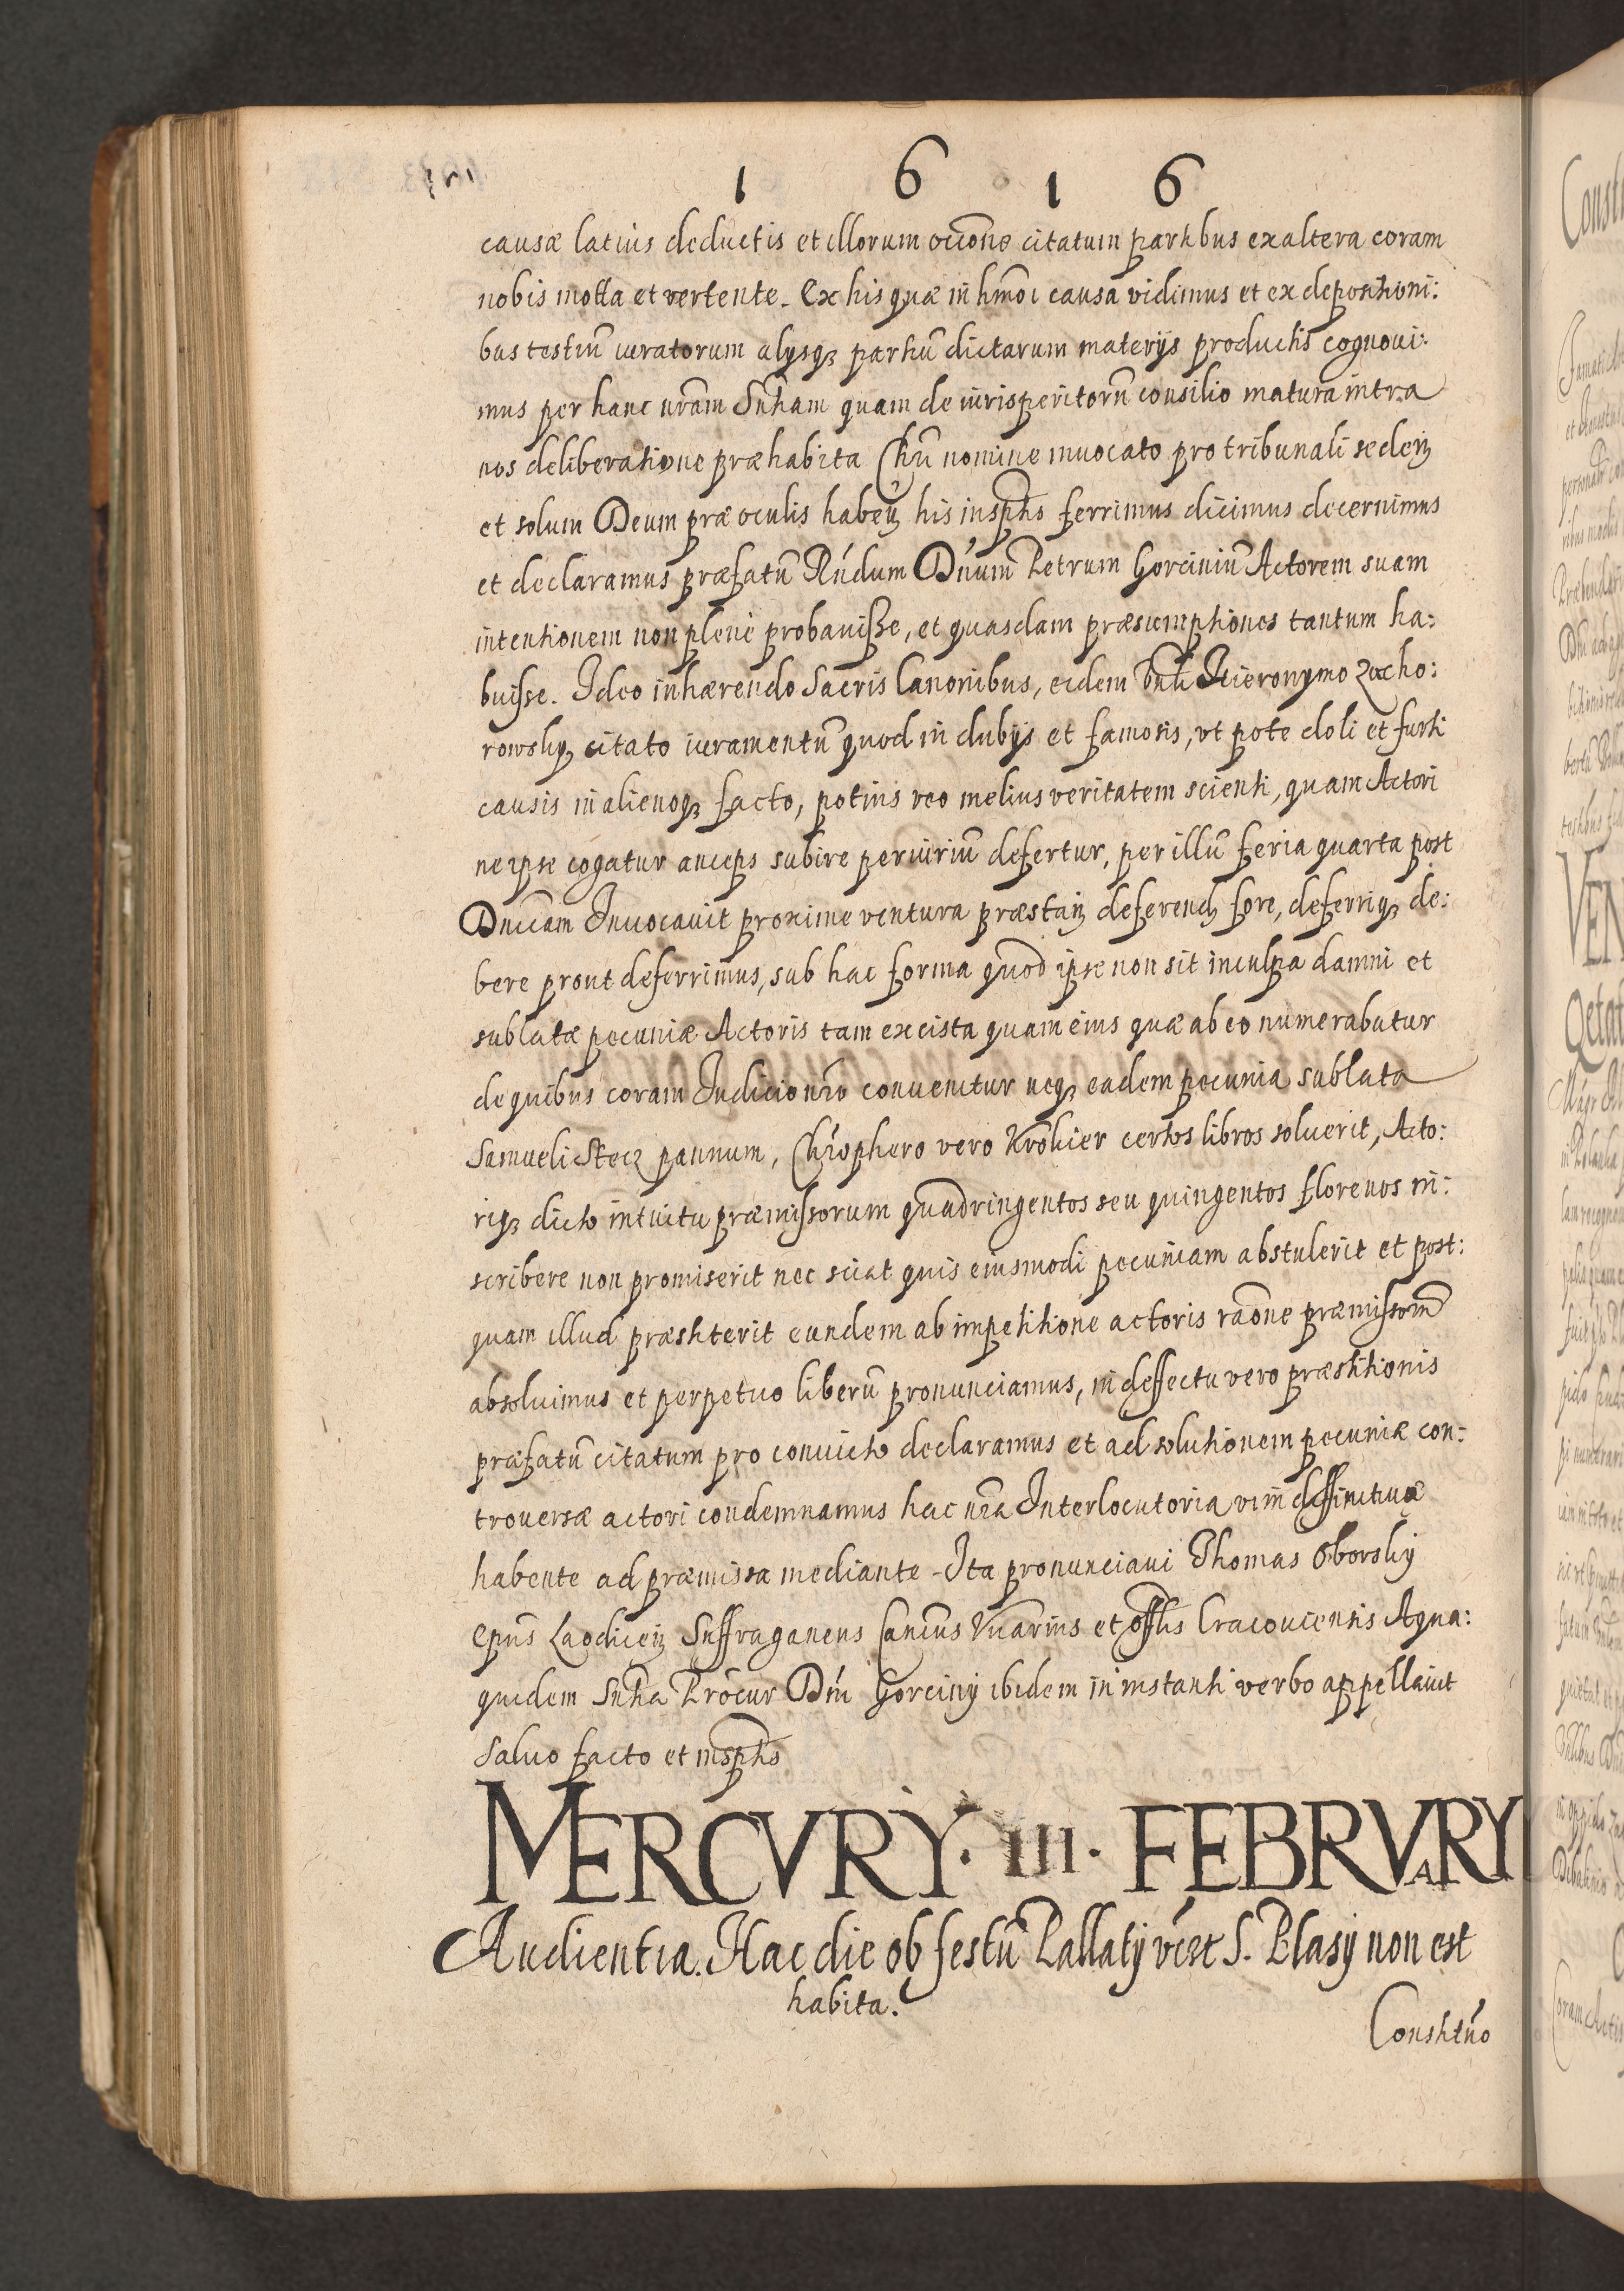 1 6 1 6
causæ latius deductis et illorum occõne citatum partibus ex altera coram
nobis motta et vertente. Ex his quæ in hmõi causa vidimus et ex depositioni:
bus testiũ iuratorum alijsqꝫ partiũ dictarum materijs productis cognoui:
mus per hanc nrãm Sntiam quam de iurisperitorũ consilio matura intra
nos deliberatione præhabita Chrĩ nomine inuocato pro tribunali sedeñ
et solum Deum præ oculis habeñ his inscriptis ferrimus dicimus decernimus
et declaramus præfatũ Rńdum Dńum Petrum Gorciniũ Actorem suam
intentionem non plene probauisse, et quasdam præsumptiones tantum ha:
buisse. Ideo inhærendo Sacris Canonibus, eidem Hieronymo Zocho:
rowskỳ citato iuramentũ quod in dubijs et famosis, vt pote doli et furti
causis in alienoqꝫ facto, potius reo melius veritatem scienti, quam Actori
ne ipse cogatur anceps subire periuriũ defertur, per illũ feria quarta post
Dnĩcam Inuocauit proxime ventura præstañ deferend fore, deferriqꝫ de:
bere prout deferrimus, sub hac forma quod ipse non sit in culpa damni et
sublatæ pecuniæ Actoris tam ex cista quam eius quæ ab eo numerabatur
de quibus coram Iudicio nr̃o conuenitur neqꝫ eadem pecunia sublata
Samueli Stecz pannum, Chrõphero vero Kromier certos libros soluerit, Acto:
riqꝫ dicto intuitu præmissorum quadringentos seu quingentos florenos in:
scribere non promiserit nec sciat quis eiusmodi pecuniam abstulerit et post:
quam illud præstiterit eundem ab impetitione actoris raõne præmissorũ
absoluimus et perpetuo liberũ pronunciamus, in deffectu vero præstitionis
præfatũ citatum pro conuicto declaramus et ad solutionem pecuniæ con:
trouersæ actori condemnamus hac nrã Interlocutoria vim deffinitiuæ
habente ad præmissa mediante. Ita pronunciaui Thomas Oborskỳ
Epũs Laodiceñ Suffraganeus Cancũs Vicarius et Offlis Cracouiensis A qua:
quidem Sntia Prõcur Dńi Gorcinij ibidem in instanti verbo appellauit
Saluo facto et inscriptis
MERCVRŸ · III · FEBRVARY
Audientia. Hac die ob festũ Pallatij vczt S. Blasij non est
habita.
Constitũo